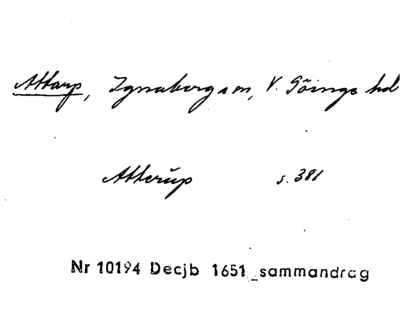 Attarp, Ignaberga sn, V. Göinge hd
Atterup s. 381
Nr 10194 Decjb 1651 sammandrag